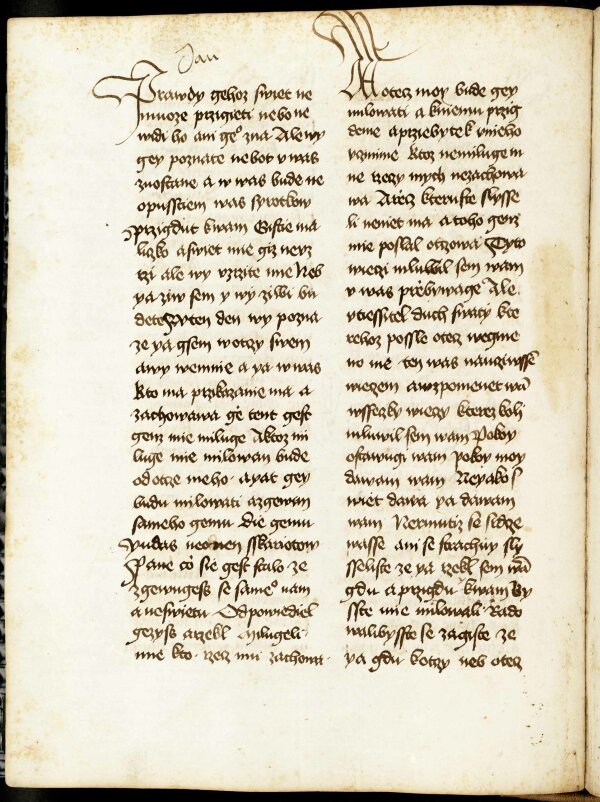 Jan
Prawdy gehoz swiet ne
muoze przigieti nebo ne
widi ho ani geº zna Ale wy
gey poznate nebot v was
zuostane a w was bude ne
opusstiem was syrotkow
przigdut kwam Gistie ma
liczko a swiet mie giz neuz
rzi ale wy vzrzite mie Neb
ya ziw sem y wy ziwi bu
dete W ten den wy pozna
ze ya gsem w otczy swem
a wy wemnie a ya w was
Kto ma przikazanie ma a
zachowawa ge tent gest
genz mie miluge A ktoz mi
luge mie milowan bude
od otcze meho a yat gey
budu milowati a zgewim
sameho gemu Die gemu
Yudas ne onen Sskariotow
Pane co sie gest stalo ze
zgewugess se sameº nam
a ne swietu Odpowiediel
gezyss a rzekl Milugeli
mie kto rzecz mu zachowa
A otecz moy bude gey
milowati a kniemu przig
deme a prziebytek vnieho
vczinime Ktoz nemiluge m
ne rzeczy mych nezachowa
wa A rzecz kteruste slysse
li neniet ma a toho genz
mie poslal otczowa Tyto
wieczi mluwil sem wam
v was przebywage Ale
vtiessitel duch swaty kte
rehoz possle otecz wegme
no me ten was nauczi wsse
wiecem a wzpomenet wa
wsseczky wieczy kterez koli
mluwil sem wam Pokoy
ostawugi wam pokoy moy
dawam wam Ne yako s
wiet dawa ya dawam
wam Nermutiz se srdcze
wasse ani se strachuy sly
sseliste ze ya rzekl sem wa
gdu a przigdu kwam By
sste mie milowali Rado
walibysste se zagiste ze
ya gdu kotczy neb otecz